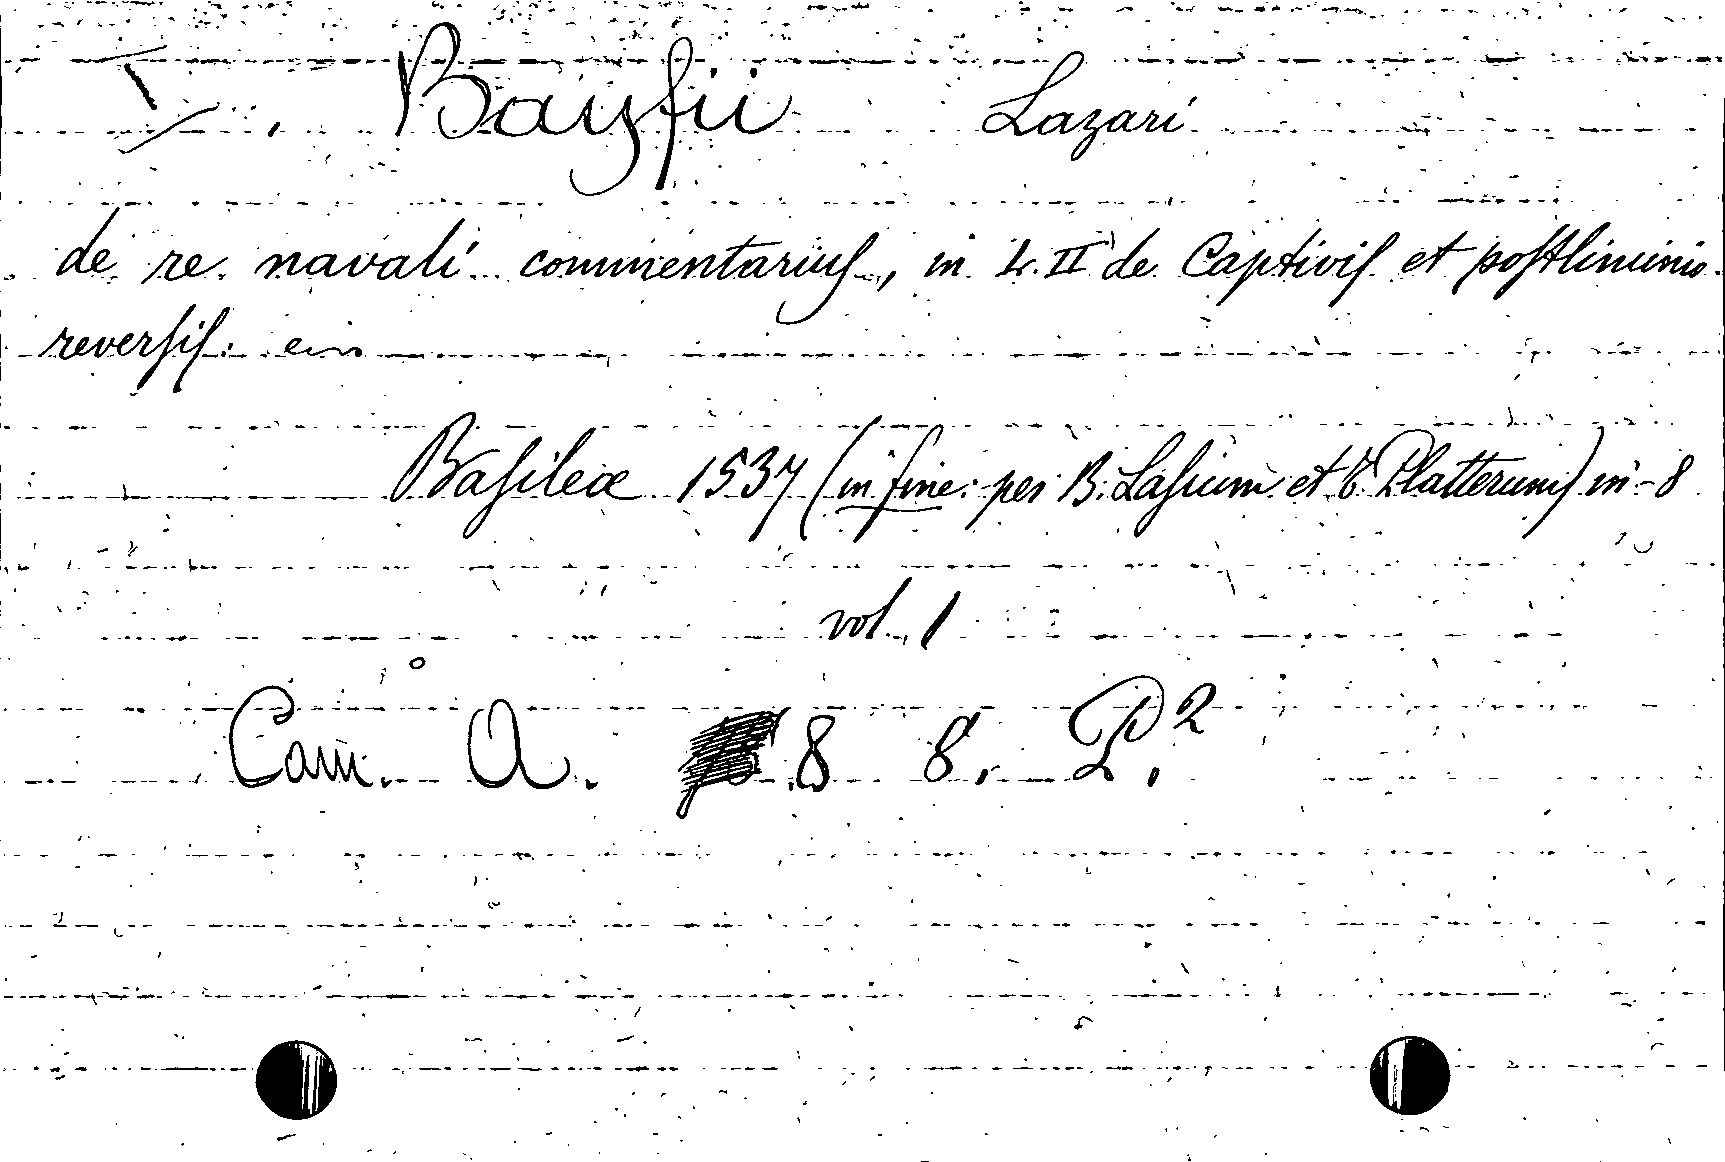 Bayfii Lazari
de re navali commentarius, in L. II de Captivis et postliminio
reversis.
Basileæ 1537 (in fine: per B. Lasium et T. Platterum) in-8
vol. 1
Cam. A. 8 8. P.2